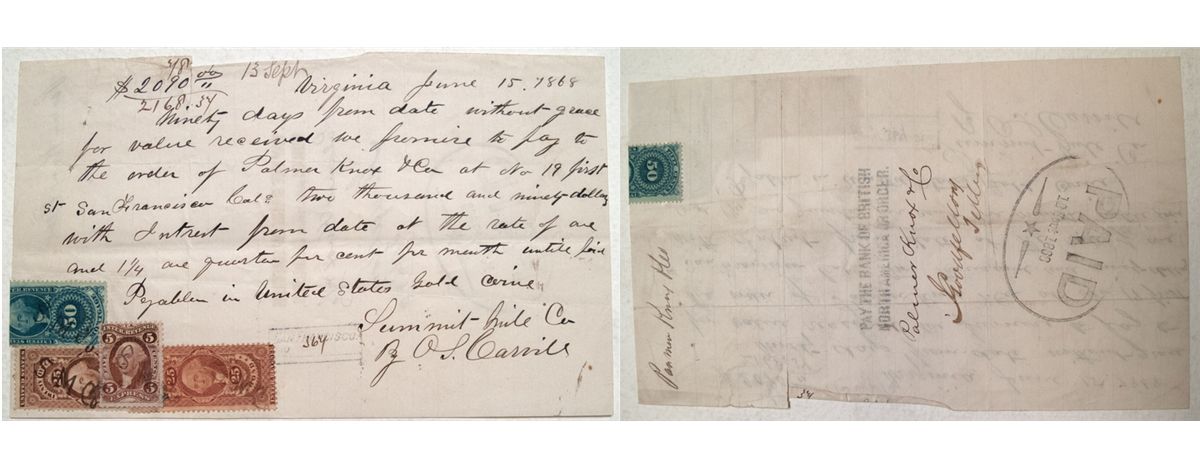 78
$ 2090 00/11
2168.34
13 Sept
Virginia June 15, 1868
Ninety days from date without grace
for value received we promise to pay to
the order of Palmer Knox & Co at No 19 first
st San Francisco Cal two thousand and ninety dollars
with Intrest from date at the rate of one
and 1 1/4 one quarter per cent per month until paid
Payable in United States Gold coine
Summit Mill Co
By O. S. Carvill
364
50
25
5
EXPRESS
5
25
25
50
Palmer Knox & Co
PAY THE BANK OF BRITISH
NORTH AMERICA OR ORDER.
Palmer Knox & Co
Goodfellow
Teller
PAID
34